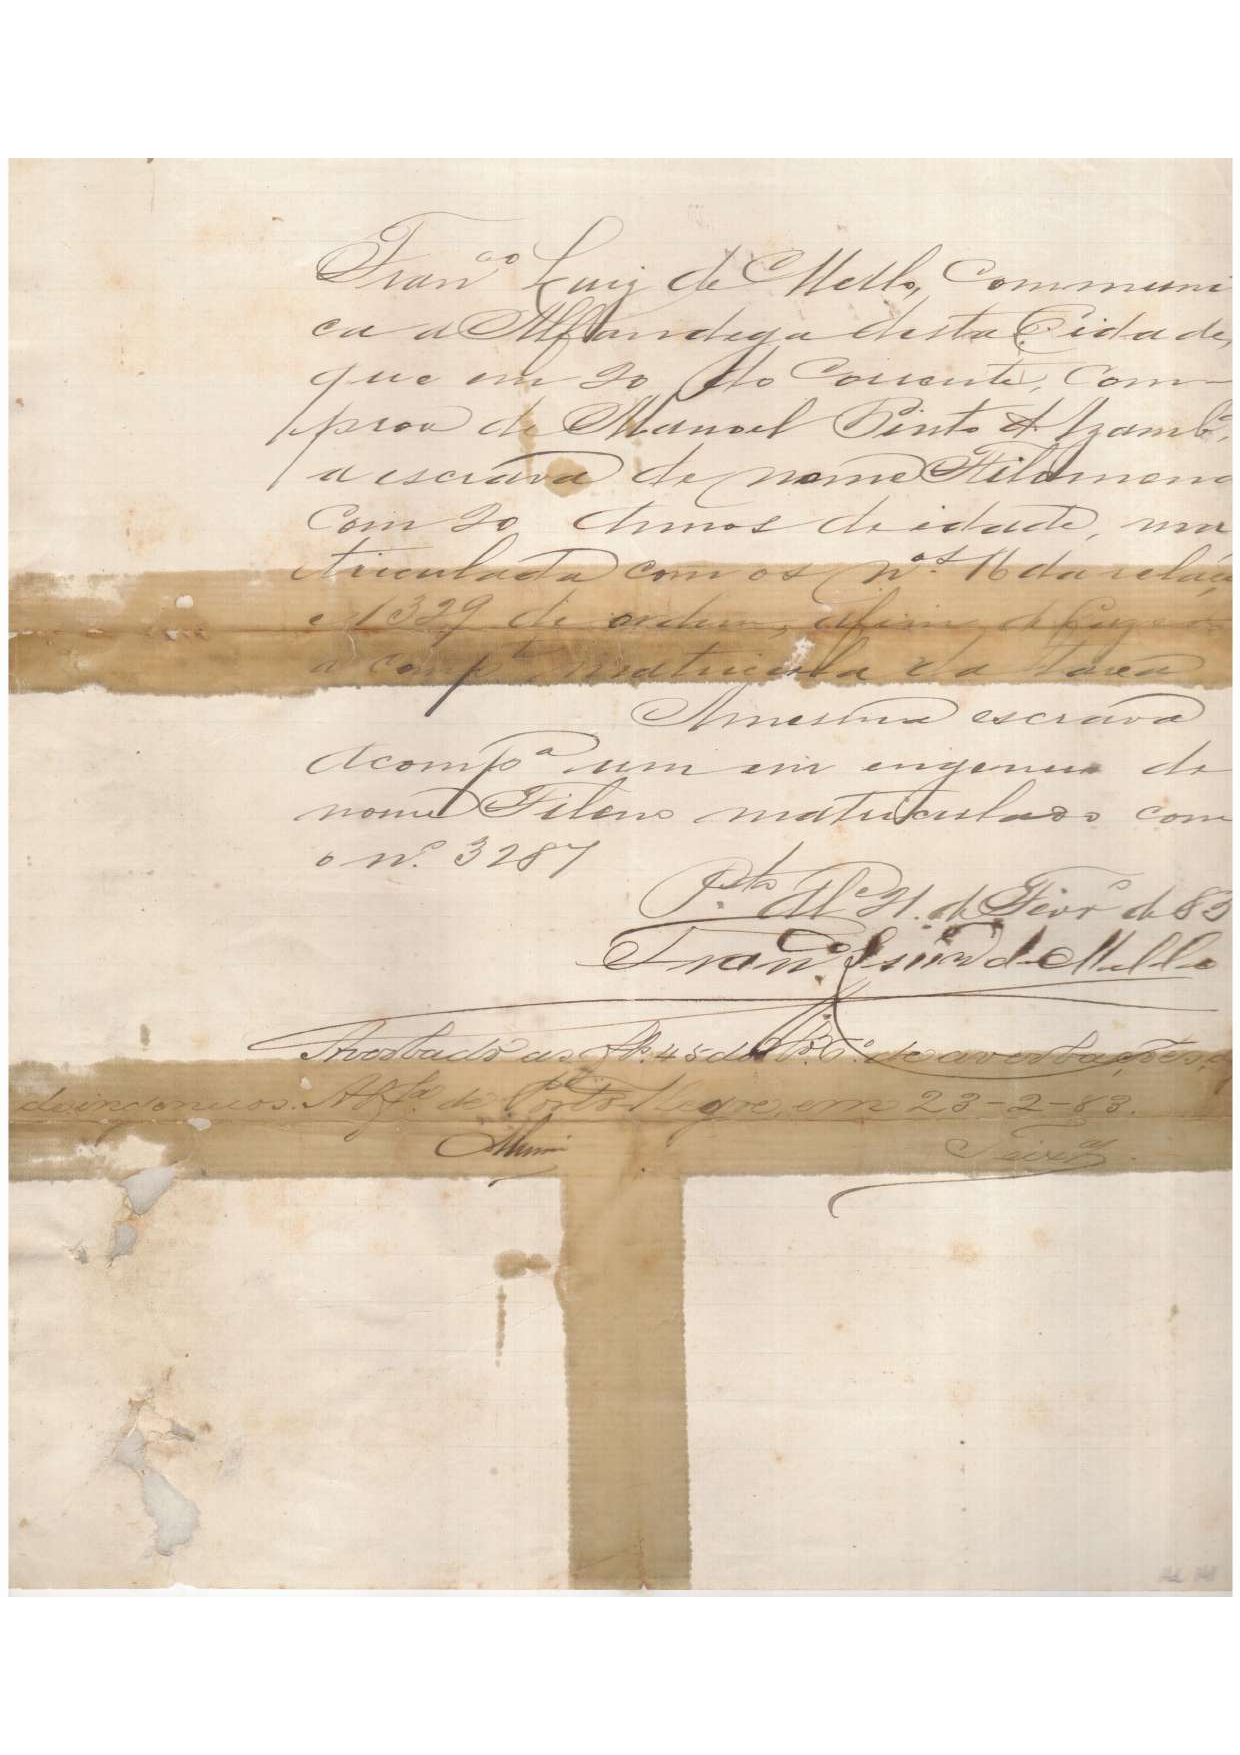 Fran^co Luiz de Mello, Communi
ca a Alfandega desta Cidade,
que em 20 do Corrente, Com-
prou de Manoel Pinto d'Azamb^a,
a escrava de nome Filomena
Com 20 Annos de idade, ma
triculada com os N^os 16 da relação
e 1329 de ordem, afim de
a comp^te matricula da taxa
A mesma escrava
acomp^a um ein engenuo de
nome Fileno matriculado com
o n^o. 3287
P^to Al^e 21. de Fever^o de 83
Fran^co Luiz de Mello
Averbado as fls. 45 do L^o 6^o. de averbações,
de ingenuos. Alf^a. de Porto Alegre, em 23-2-83.